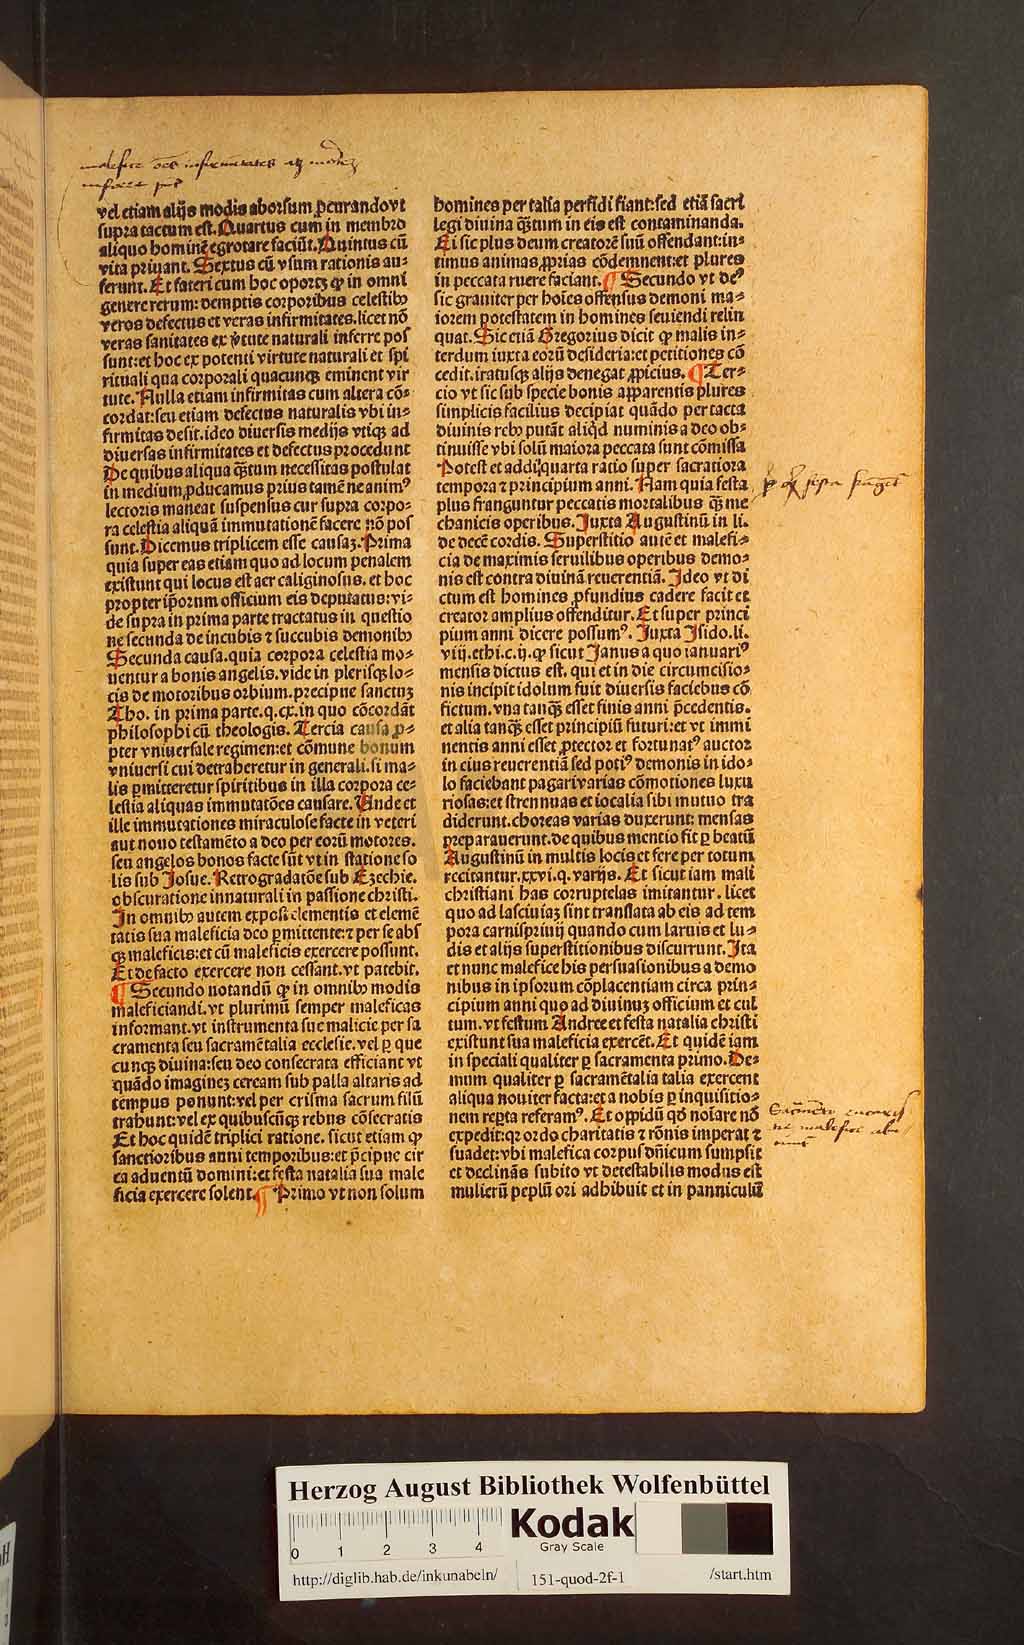 malefice oēs infirmitates
inferre
vel etiam alijs modis aborsum ꝓcurando vt
supra tactum est. Quartus cum in membro
aliquo hominē egrotare faciūt. Quintus cū
vita priuant. Sextus cū vsum rationis au⸗
ferunt. Et fateri cum hoc oportꝫ ꝙ in omni
genere rerum: demptis corporibus celestibꝰ
veros defectus et veras infirmitates. licet nō
veras sanitates ex v̓tute naturali inferre pos
sunt: et hoc ex potenti virtute naturali et spi
rituali qua corporali quacunqꝫ eminent vir
tute. Nulla etiam infirmitas cum altera cō⸗
cordat: seu etiam defectus naturalis vbi in⸗
firmitas desit. ideo diuersis medijs vtiqꝫ ad
diuersas infirmitates et defectus procedunt
De quibus aliqua qꝫ̄tum necessitas postulat
in medium ꝓducamus prius tamē ne animꝰ
lectoris maneat suspensus cur supra corpo⸗
ra celestia aliquā immutationē facere nō pos
sunt. Dicemus triplicem esse causaꝫ. Prima
quia super eas etiam quo ad locum penalem
existunt qui locus est aer caliginosus. et hoc
propter ip̄orum officium eis deputatus: vi⸗
de supra in prima parte tractatus in questio
ne secunda de incubis ⁊ succubis demonibꝰ
Secunda causa. quia corpora celestia mo⸗
uentur a bonis angelis. vide in plerisqꝫ lo⸗
cis de motoribus orbium. precipue sanctuꝫ
Tho. in prima parte. q. cx. in quo cōcordāt
philosophi cū theologis. Tercia causa ꝓ⸗
pter vniuersale regimen: et cōmune bonum
vniuersi cui detraheretur in generali. si ma⸗
lis ꝑmitteretur spiritibus in illa corpora ce⸗
lestia aliquas immutatōes causare. Unde et
ille immutationes miraculose facte in veteri
aut nouo testamēto a deo per eorū motores.
seu angelos bonos facte sūt vt in statione so
lis sub Josue. Retrogradatōe sub Ezechie.
obscuratione innaturali in passione christi.
In omnibꝰ autem exposi elementis et elemē
tatis sua maleficia deo ꝑmittente: ⁊ per se abs
qꝫ maleficis: et cū maleficis exercere possunt.
Et de facto exercere non cessant. vt patebit.
¶ Secundo notandū ꝙ in omnibꝰ modis
maleficiandi. vt plurimū semper maleficas
informant. vt instrumenta sue malicie per sa
cramenta seu sacramētalia ecclesie. vel ꝑ que
cunqꝫ diuina: seu deo consecrata efficiant vt
quādo imagineꝫ ceream sub palla altaris ad
tempus ponunt: vel per crisma sacrum filū
trahunt: vel ex quibuscūqꝫ rebus cōsecratis
Et hoc quidē triplici ratione. sicut etiam ꝙ
sanctioribus anni temporibus: et p̄cipue cir
ca aduentū domini: et festa natalia sua male
ficia exercere solent. ¶ Primo vt non solum
homines per talia perfidi fiant: sed etiā sacri
legi diuina qꝫ̄tum in eis est contaminanda.
Ei sic plus deum creatorē suū offendant: in⸗
timus animas ꝓprias cōdemnent: et plures
in peccata ruere faciant. ¶ Secundo vt deꝰ
sic grauiter per hoīes offensus demoni ma⸗
iorem potestatem in homines seuiendi relin
quat. Sic etiā Gregorius dicit ꝙ malis in⸗
terdum iuxta eorū desideria: et petitiones cō
cedit. iratusqꝫ alijs denegat ꝓpicius. ¶ Ter⸗
cio vt sic sub specie bonis apparentis plures
simplicis facilius decipiat quādo per tacta
diuinis rebꝰ putāt aliqd̓ numinis a deo ob⸗
tinuisse vbi solū maiora peccata sunt cōmissa
Potest et addi quarta ratio super sacratiora
tempora ⁊ principium anni. Nam quia festa
plus franguntur peccatis mortalibus qꝫ̄ me
chanicis operibus. Juxta Augustinū in li.
de decē cordis. Superstitio autē et malefi⸗
cia de maximis seruilibus operibus demo⸗
nis est contra diuinā reuerentiā. Ideo vt di
ctum est homines ꝓfundius cadere facit et
creator amplius offenditur. Et super princi
pium anni dicere possumꝰ. Juxta Isido. li.
viij. ethi. c. ij. ꝙ sicut Janus a quo ianuariꝰ
mensis dictus est. qui et in die circumcisio⸗
nis incipit idolum fuit diuersis faciebus cō
fictum. vna tanqꝫ̄ esset finis anni p̄cedentis.
et alia tanqꝫ̄ esset principiū futuri: et vt immi
nentis anni esset ꝓtector et fortunatꝰ auctor
in eius reuerentiā sed potiꝰ demonis in ido⸗
lo faciebant pagari varias cōmotiones luxu
riosas: et strennuas et iocalia sibi mutuo tra
diderunt. choreas varias duxerunt: mensas
preparauerunt. de quibus mentio fit ꝑ beatū
Augustinū in multis locis et fere per totum
recitantur. xxvi. q. varijs. Et sicut iam mali
christiani has corruptelas imitantur. licet
quo ad lasciuiaꝫ sint translata ab eis ad tem
pora carnispriuij quando cum laruis et lu⸗
dis et alijs superstitionibus discurrunt. Ita
et nunc malefice his persuasionibus a demo
nibus in ipsorum cōplacentiam circa prin⸗
cipium anni quo ad diuinuꝫ officium et cul
tum. vt festum Andree et festa natalia christi
existunt sua maleficia exercēt. Et quidē iam
in speciali qualiter ꝑ sacramenta primo. De⸗
mum qualiter ꝑ sacramētalia talia exercent
aliqua nouiter facta: et a nobis ꝑ inquisitio⸗
nem reꝑta referamꝰ. Et oppidū qd̓ noīare nō
expedit: qꝛ ordo charitatis ⁊ rōnis imperat ⁊
suadet: vbi malefica corpus dn̄icum sumpsit
et declinās subito vt detestabilis modus est
mulierū peplū ori adhibuit et in panniculū
Herzog August Bibliothek Wolfenbüttel
0 1 2 3 4
Kodak
Gray Scale
http://diglib.hab.de/inkunabeln/
151-quod-2f-1
/start.htm